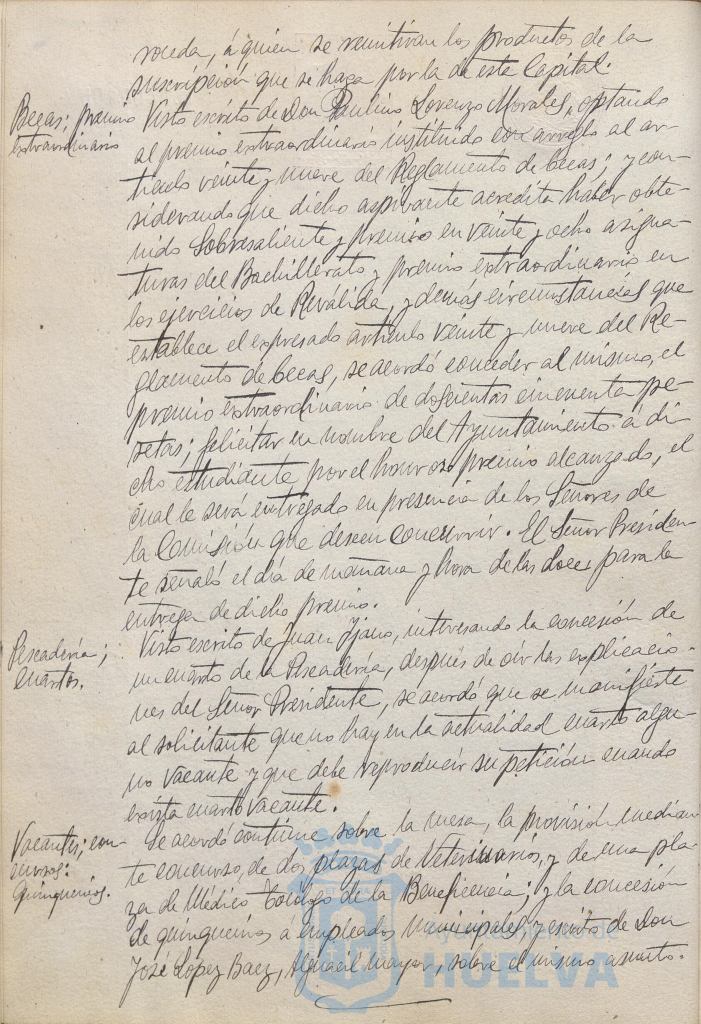 roceda, á quien se remitiran los productos de la
suscripción que se haga por la de esta Capital.
Becas; premio
extraordinario
Visto escrito de Don Paulino Lorenzo Morales, optando
al premio extraordinario instituido con arreglo al ar-
tículo veinte y nueve del Reglamento de becas; y con-
siderando que dicho aspirante acredita haber obte-
nido Sobresaliente y premio en veinte y ocho asigna-
turas del Bachillerato y premio extraordinario en
los ejercicios de Reválida, y demás circunstancias que
establece el expresado artículo veinte y nueve del Re-
glamento de becas, se acordó conceder al mismo, el
premio extraordinario de doscientas cincuenta pe-
setas; felicitar en nombre del Ayuntamiento á di-
cho estudiante por el honroso premio alcanzado, el
cual le será entregado en presencia de los Señores de
la Comisión que deseen concurrir. El Señor Presiden-
te señaló el día de mañana y hora de las doce para la
entrega de dicho premio.
Pescadería;
cuartos.
Visto escrito de Juan, interesando la concesión de
un cuarto de la Pescadería, después de oir las explicacio-
nes del Señor Presidente, se acordó que se manifieste
al solicitante que no hay en la actualidad cuarto algu-
no vacante y que debe reproducir su petición cuando
exista cuarto vacante.
Vacantes; con-
cursos:
quinquenios.
Se acordó continue sobre la mesa, la provisión median-
te concurso, de dos plazas de Veterinario, y de una pla-
za de Médico Tocólogo de la Beneficencia; y la concesión
de quinquenios á empleados municipales, y escrito de Don
José López Baez, Alguacil mayor, sobre el mismo asunto.
HUELVA